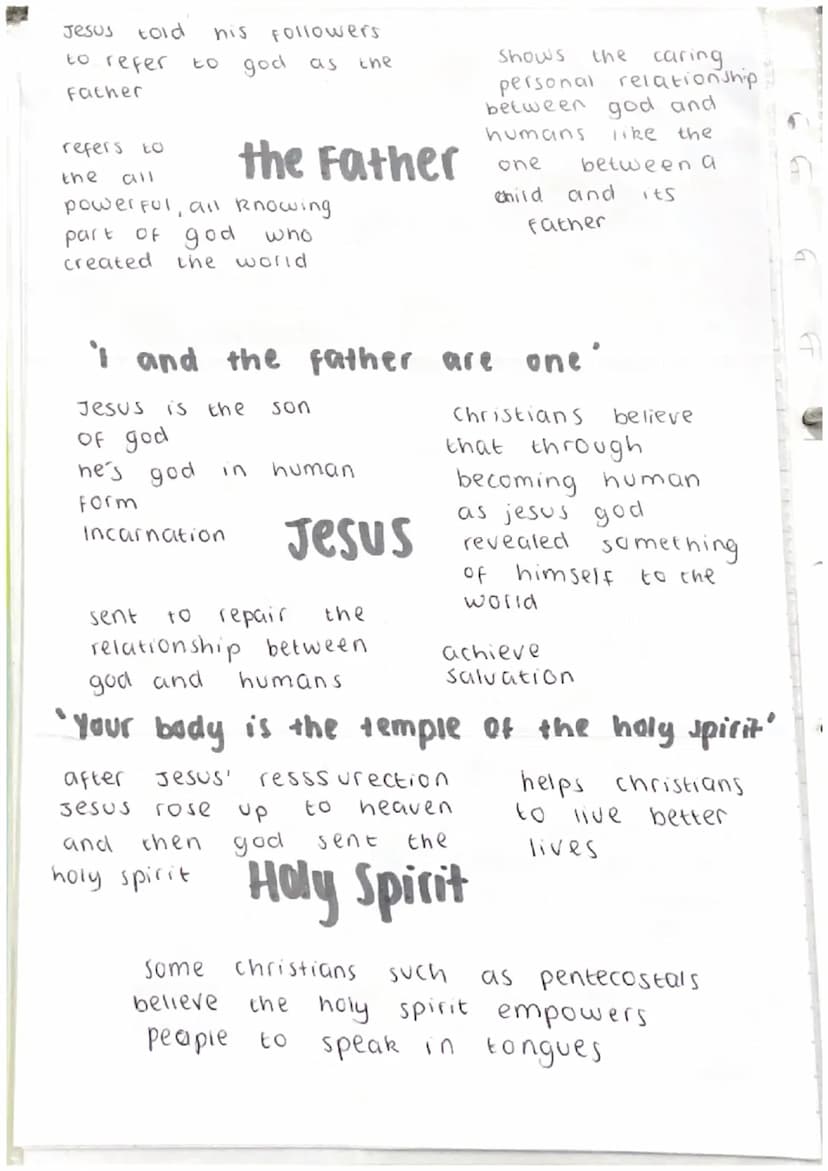 Jesus told his followers
to refer to god as the
Father
refers to
the all
powerful, all knowing
part of god who
created the world
the Father
shows the caring
personal relationship
between god and
humans like the
one between a
child and its
father
'I and the father are one'
Jesus is the son
of god
he's god in human
form
Incarnation
Jesus
sent to repair the
relationship between
god and humans
Christians believe
that through
becoming human
as jesus god
revealed something
of himself to the
world
achieve
salvation
'Your body is the temple of the holy spirit'
after Jesus' resssurection
Jesus rose up to heaven
and then god sent the
holy spirit
helps christians
to live better
lives
Holy Spirit
some christians such as pentecostals
believe the holy spirit empowers
people to speak in tongues